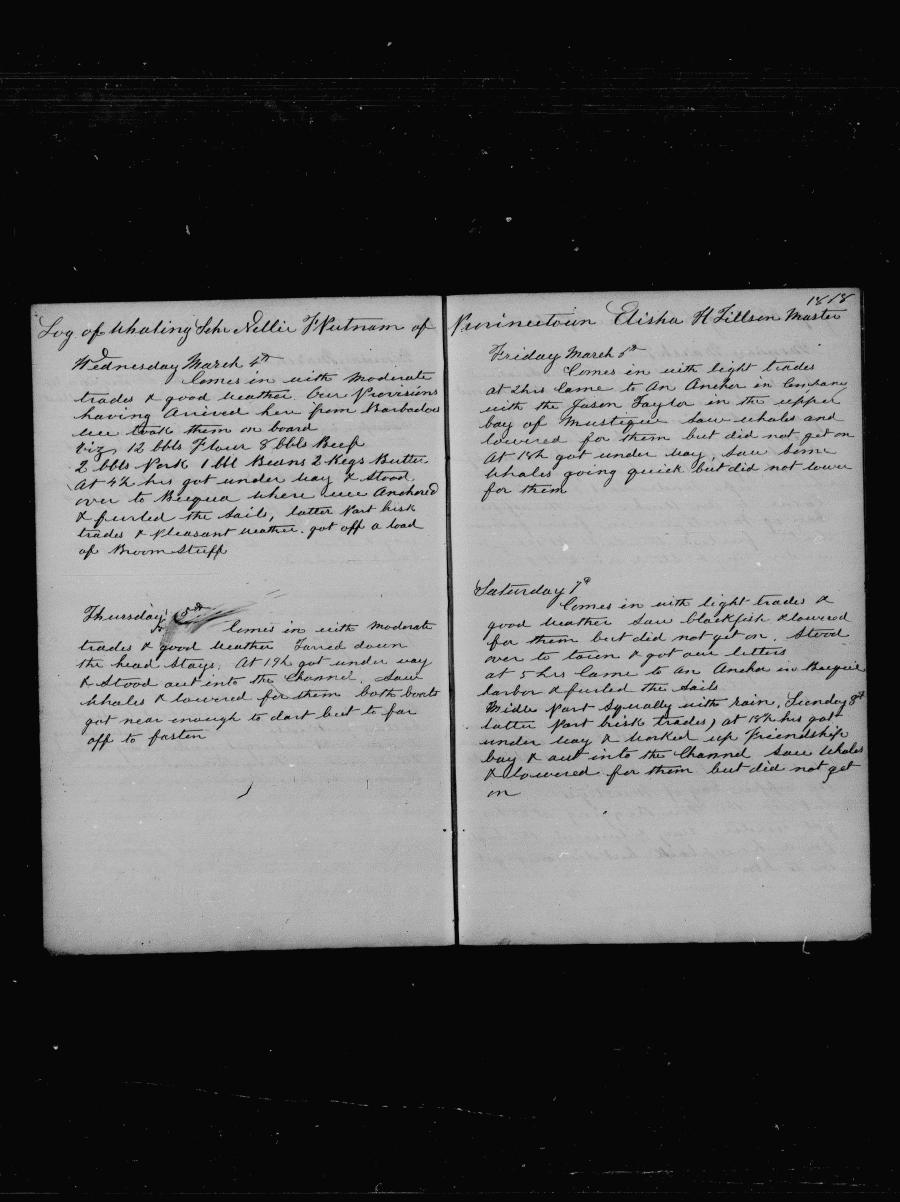 Log of Whaling Schr Nellie F Putnam of
Wednesday March 4th
Comes in with moderate
trades & good weather. Our Provisions
having arived here from Barbados
we took them on board
viz, 12 bbls Flour 8 bbls Beef
2 bbls Pork 1 bbl Beans 2 Kegs Butter
At 4½ hrs got under way & stood
over to Becqua where we Anchored
& furled the Sails, latter Part brisk
trades & Pleasant weather. got off a load
of Broom Stuff
Thursday 5th
Comes in with moderate
trades & good weather Tarred down
the head Stays. At 19h got under way
& stood out into the Channel. Saw
Whales & lowered for them both boats
got near enough to dart but to far
off to fasten
1818
Provincetown Elisha H Tillson Master
Friday March 6th
Comes in with light trades
at 2 hrs Came to An Anchor in Company
with the Jason Taylor in the upper
bay of Mustique Saw whales and
lowered for them but did not get on
At 18h got under way, Saw Some
Whales going quick but did not lower
for them
Saturday 7th
Comes in with light trades &
good weather Saw blackfish & lowered
for them but did not get on. Stood
over to town & got our letters
at 5 hrs Came to An Anchor in Becquia
harbor & furled the Sails
Midle Part Squally with rain. Sunday 8th
latter Part brisk trades, at 18½ hrs got
under way & worked up Friendship
bay & out into the Channel Saw Whales
& lowered for them but did not get
on